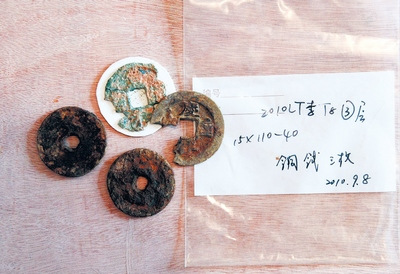 2010LT李T8③层
15×110-40
铜钱三枚
2010.9.8